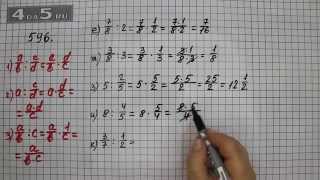 4 ДО 5.ru
596.
1) a/b : c/d = a/b · d/c = a·d/b·c
2) a : c/d = a · d/c = a·d/c
3) a/b : c = a/b · 1/c = a/b·c
е) 7/8 : 2 = 7/8 · 1/2 = 7·1/8·2 = 7/16
ж) 3/8 : 3 = 3/8 · 1/3 = 3·1/8·3 = 1/8
з) 5 : 2/5 = 5 · 5/2 = 5·5/2 = 25/2 = 12 1/2
и) 8 : 4/5 = 8 · 5/4 = 8·5/4
к) 3/7 : 1/2 =